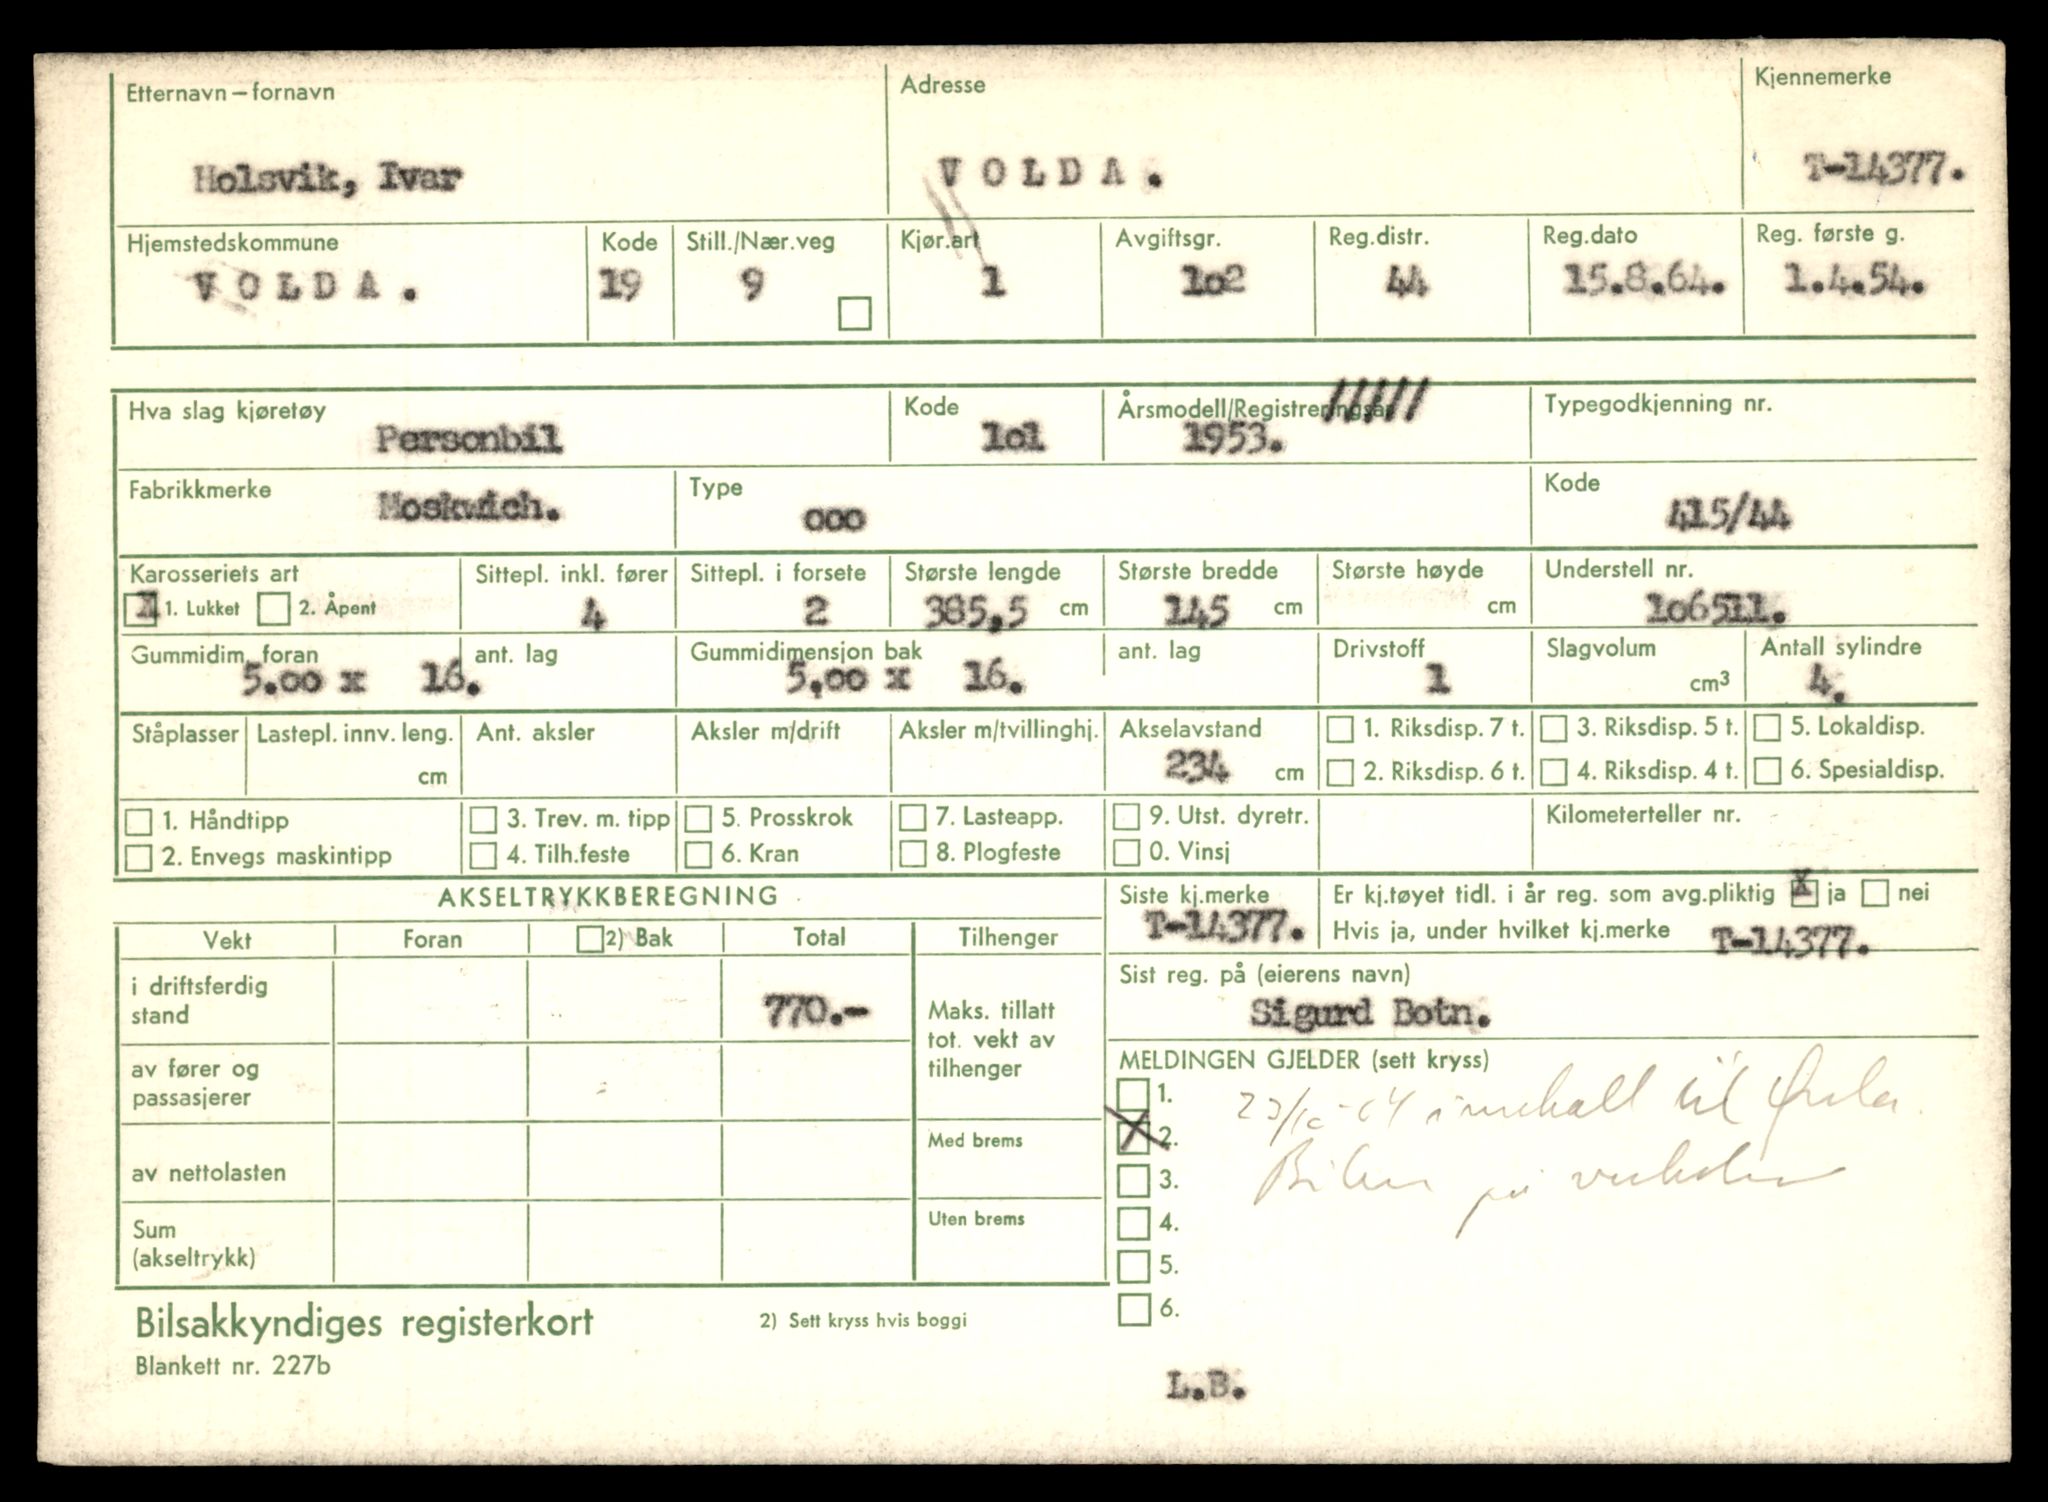 Etternavn – fornavn Adresse Kjennemerke
Holsvik, Ivar VOLDA. T-14377.
Hjemstedskommune Kode Still./Nær.veg Kjør.art Avgiftsgr. Reg.distr. Reg.dato Reg. første g.
VOLDA. 19 9 1 1o2 44 15.8.64. 1.4.54.
Hva slag kjøretøy Kode Årsmodell/Registreringsår Typegodkjenning nr.
Personbil 1o1 1953.
Fabrikkmerke Type Kode
Moskwich. ooo 415/44
Karosseriets art Sittepl. inkl. fører Sittepl. i forsete Største lengde Største bredde Største høyde Understell nr.
1. Lukket 2. Åpent 4 2 385,5 cm 145 cm cm 1o6511.
Gummidim. foran ant. lag Gummidimensjon bak ant. lag Drivstoff Slagvolum Antall sylindre
5.oo x 16. 5.oo x 16. 1 cm³ 4.
Ståplasser Lastepl. innv. leng. Ant. aksler Aksler m/drift Aksler m/tvillinghj. Akselavstand 1. Riksdisp. 7 t. 3. Riksdisp. 5 t. 5. Lokaldisp.
cm 234 cm 2. Riksdisp. 6 t. 4. Riksdisp. 4 t. 6. Spesialdisp.
1. Håndtipp 3. Trev. m. tipp 5. Prosskrok 7. Lasteapp. 9. Utst. dyretr. Kilometerteller nr.
2. Envegs maskintipp 4. Tilh.feste 6. Kran 8. Plogfeste 0. Vinsj
AKSELTRYKKBEREGNING Siste kj.merke Er kj.tøyet tidl. i år reg. som avg.pliktig X ja nei
T-14377. Hvis ja, under hvilket kj.merke T-14377.
Vekt Foran 2) Bak Total Tilhenger
Sist reg. på (eierens navn)
i driftsferdig stand 770.- Sigurd Botn.
Maks. tillatt tot. vekt av tilhenger
MELDINGEN GJELDER (sett kryss)
av fører og passasjerer
1. til Ørsta
Med brems X 2.
av nettolasten 3. Bilen på
Uten brems 4.
Sum (akseltrykk) 5.
6.
Bilsakkyndiges registerkort 2) Sett kryss hvis boggi
Blankett nr. 227b
L.B.